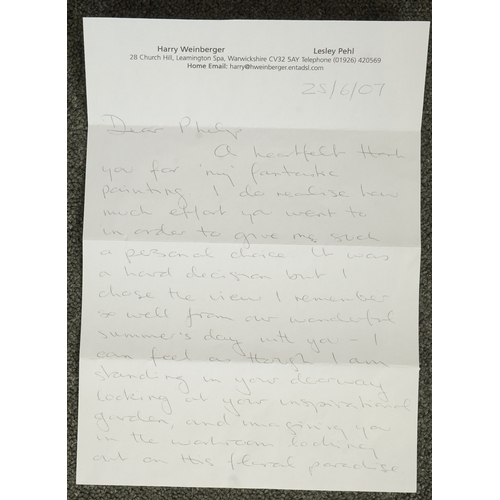 Harry Weinberger Lesley Pehl
28 Church Hill, Leamington Spa, Warwickshire CV32 5AY Telephone (01926) 420569
Home Email: harry@hweinberger.entadsl.com
25/6/07
Dear Philip
A heartfelt thank
you for 'my' fantastic
painting. I do realise how
much effort you went to
in order to give me such
a personal choice. It was
a hard decision but I
chose the view I remember
so well from our wonderful
summer's day with you - I
can feel as though I am
standing in your doorway
looking at your inspirational
garden, and imagining you
in the workroom looking
out on this floral paradise